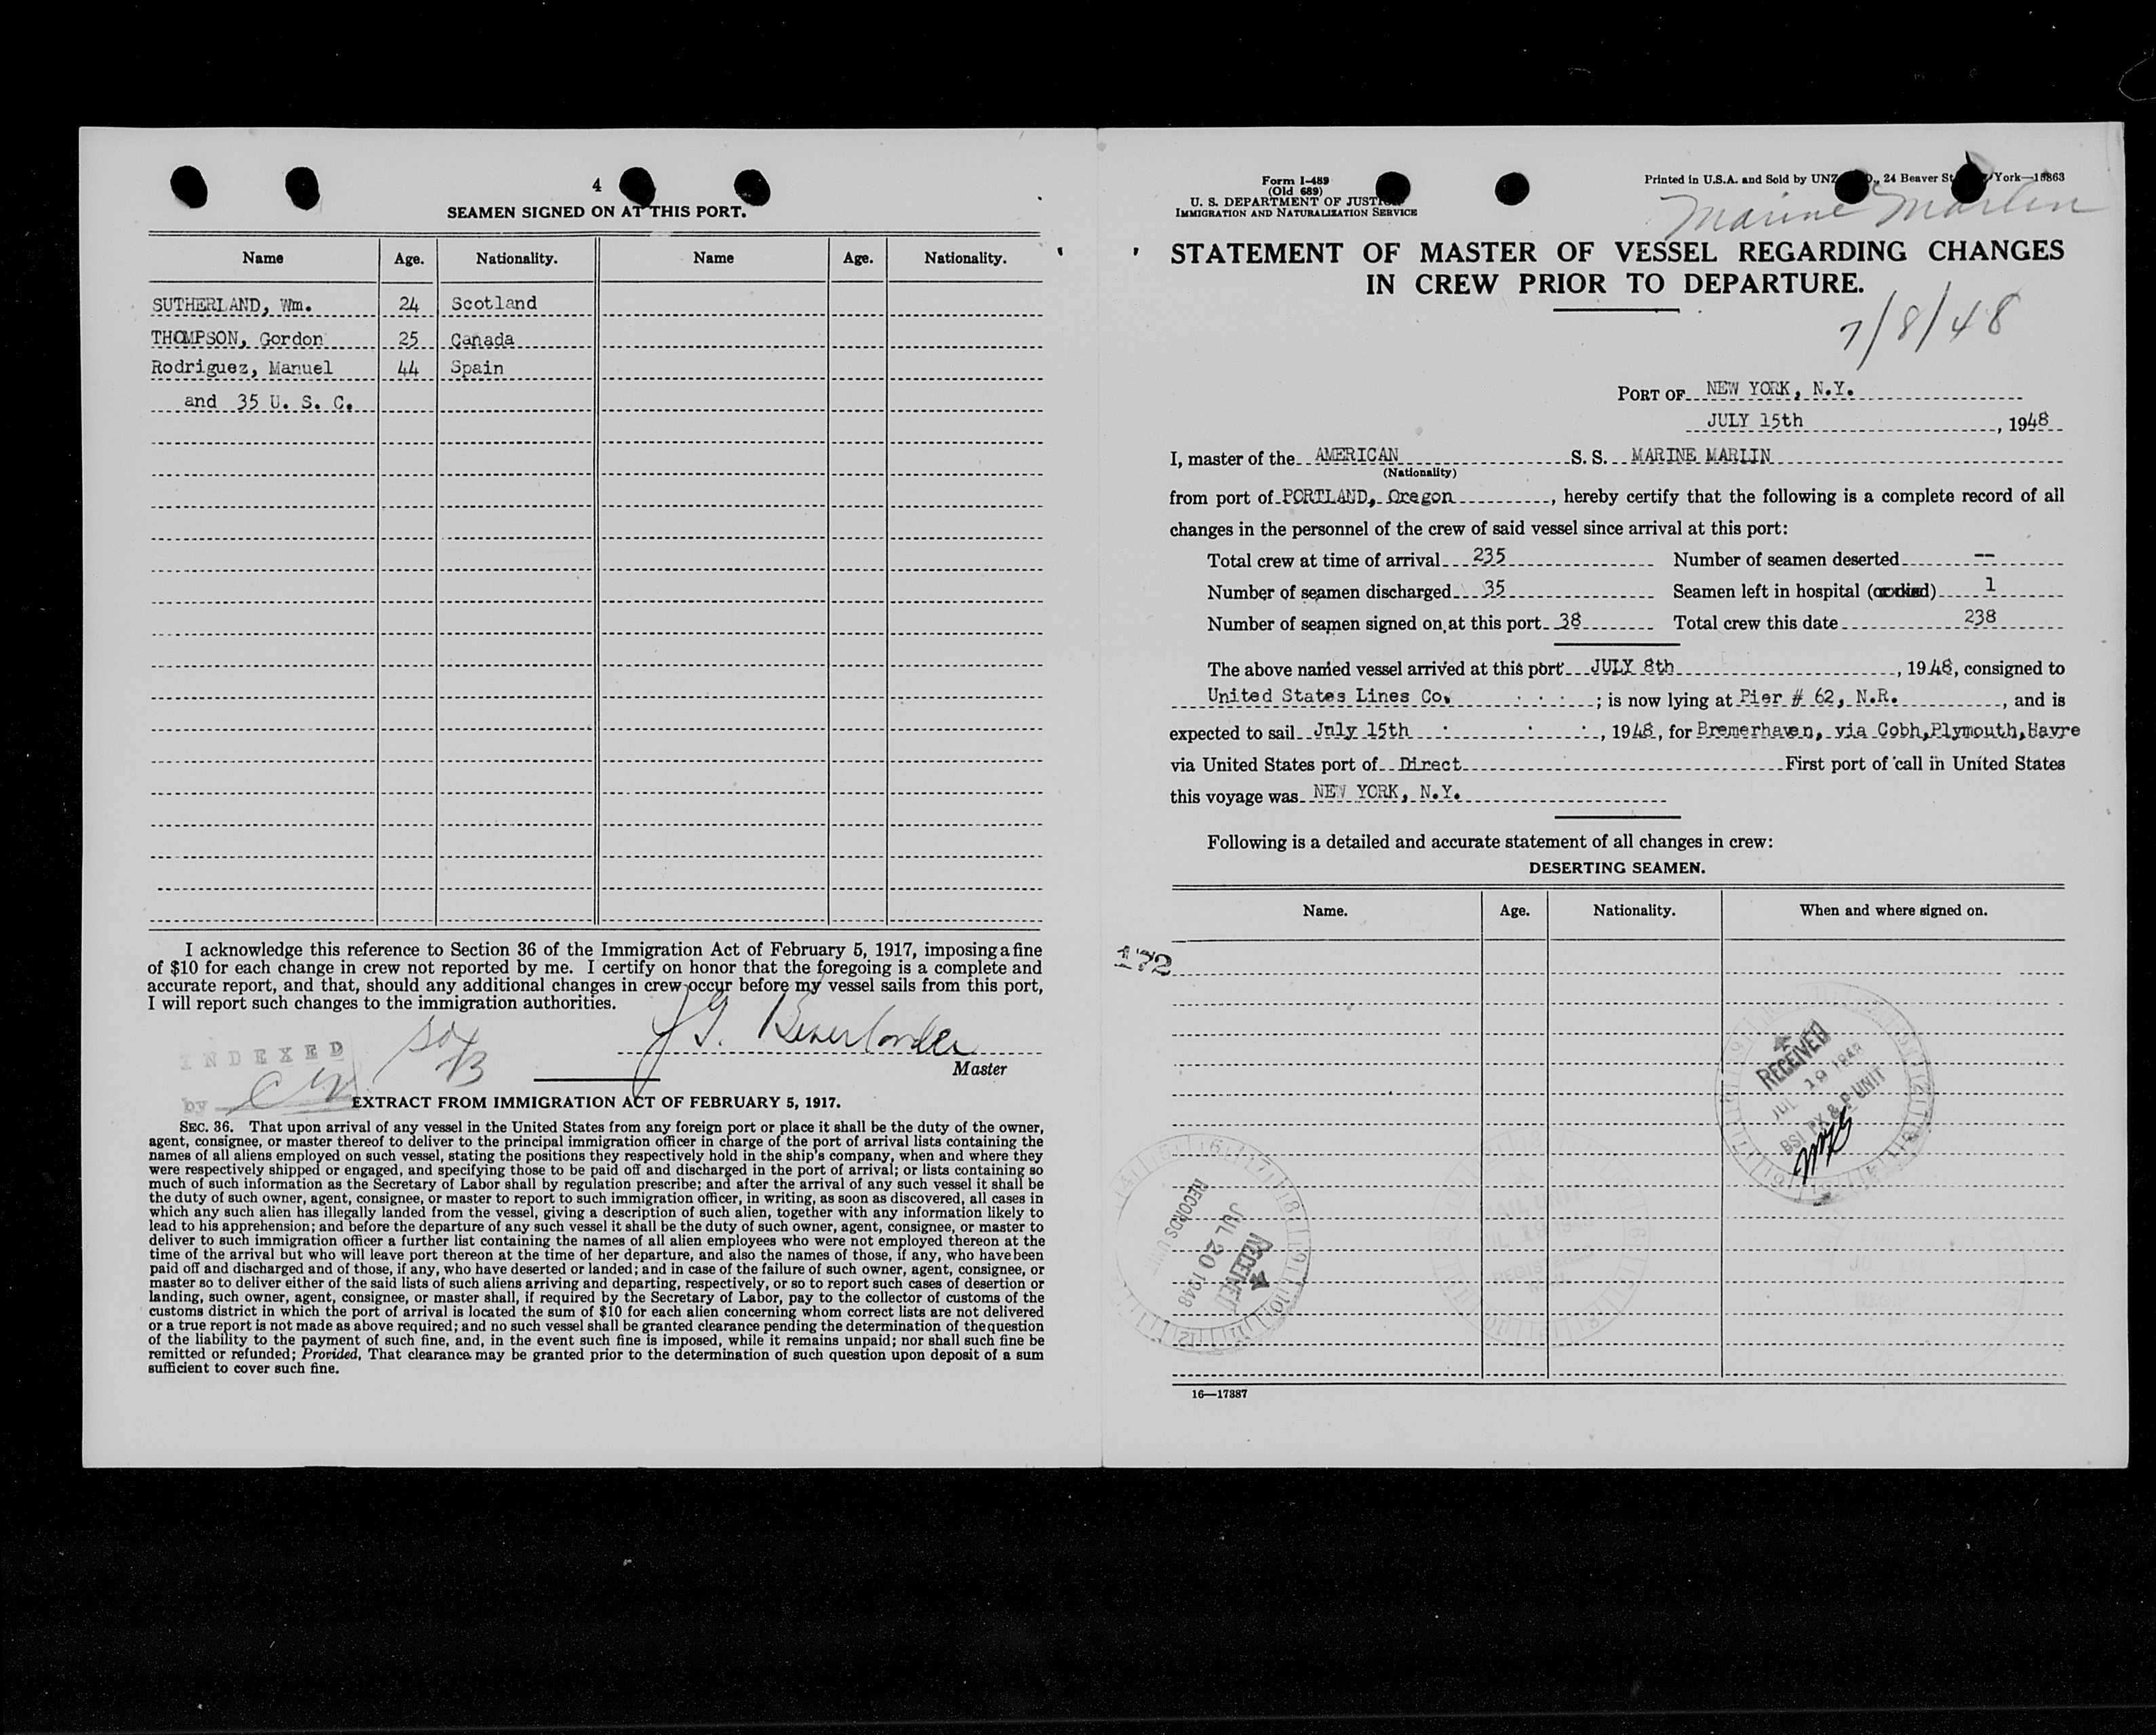 4
SEAMEN SIGNED ON AT THIS PORT.
Name Age. Nationality. Name Age. Nationality.
SUTHERLAND, Wm. 24 Scotland
THOMPSON, Gordon 25 Canada
Rodriguez, Manuel 44 Spain
and 35 U. S. C.
I acknowledge this reference to Section 36 of the Immigration Act of February 5, 1917, imposing a fine
of $10 for each change in crew not reported by me. I certify on honor that the foregoing is a complete and
accurate report, and that, should any additional changes in crew occur before my vessel sails from this port,
I will report such changes to the immigration authorities.
INDEXED
by
Master
EXTRACT FROM IMMIGRATION ACT OF FEBRUARY 5, 1917.
SEC. 36. That upon arrival of any vessel in the United States from any foreign port or place it shall be the duty of the owner,
agent, consignee, or master thereof to deliver to the principal immigration officer in charge of the port of arrival lists containing the
names of all aliens employed on such vessel, stating the positions they respectively hold in the ship's company, when and where they
were respectively shipped or engaged, and specifying those to be paid off and discharged in the port of arrival; or lists containing so
much of such information as the Secretary of Labor shall by regulation prescribe; and after the arrival of any such vessel it shall be
the duty of such owner, agent, consignee, or master to report to such immigration officer, in writing, as soon as discovered, all cases in
which any such alien has illegally landed from the vessel, giving a description of such alien, together with any information likely to
lead to his apprehension; and before the departure of any such vessel it shall be the duty of such owner, agent, consignee, or master to
deliver to such immigration officer a further list containing the names of all alien employees who were not employed thereon at the
time of the arrival but who will leave port thereon at the time of her departure, and also the names of those, if any, who have been
paid off and discharged and of those, if any, who have deserted or landed; and in case of the failure of such owner, agent, consignee, or
master so to deliver either of the said lists of such aliens arriving and departing, respectively, or so to report such cases of desertion or
landing, such owner, agent, consignee, or master shall, if required by the Secretary of Labor, pay to the collector of customs of the
customs district in which the port of arrival is located the sum of $10 for each alien concerning whom correct lists are not delivered
or a true report is not made as above required; and no such vessel shall be granted clearance pending the determination of the question
of the liability to the payment of such fine, and, in the event such fine is imposed, while it remains unpaid; nor shall such fine be
remitted or refunded; Provided, That clearance may be granted prior to the determination of such question upon deposit of a sum
sufficient to cover such fine.
Form I-489
(Old 689)
U. S. DEPARTMENT OF JUSTICE
IMMIGRATION AND NATURALIZATION SERVICE
Printed in U.S.A. and Sold by UNZ 24 Beaver St York—18863
Marine Marlin
STATEMENT OF MASTER OF VESSEL REGARDING CHANGES
IN CREW PRIOR TO DEPARTURE.
7/8/48
PORT OF NEW YORK, N.Y.
JULY 15th, 1948
I, master of the AMERICAN S. S. MARINE MARLIN
(Nationality)
from port of PORTLAND, Oregon, hereby certify that the following is a complete record of all
changes in the personnel of the crew of said vessel since arrival at this port:
Total crew at time of arrival 235 Number of seamen deserted --
Number of seamen discharged 35 Seamen left in hospital (or died) 1
Number of seamen signed on at this port 38 Total crew this date 238
The above named vessel arrived at this port JULY 8th, 1948, consigned to
United States Lines Co. ; is now lying at Pier # 62, N.R., and is
expected to sail July 15th, 1948, for Bremerhaven, via Cobh,Plymouth,Havre
via United States port of Direct First port of call in United States
this voyage was NEW YORK, N.Y.
Following is a detailed and accurate statement of all changes in crew:
DESERTING SEAMEN.
Name. Age. Nationality. When and where signed on.
172
RECEIVED
JUL 19 1948
BSI PX & P UNIT
RECORDS UNIT
JUL 20 1948
RECEIVED
16—17387